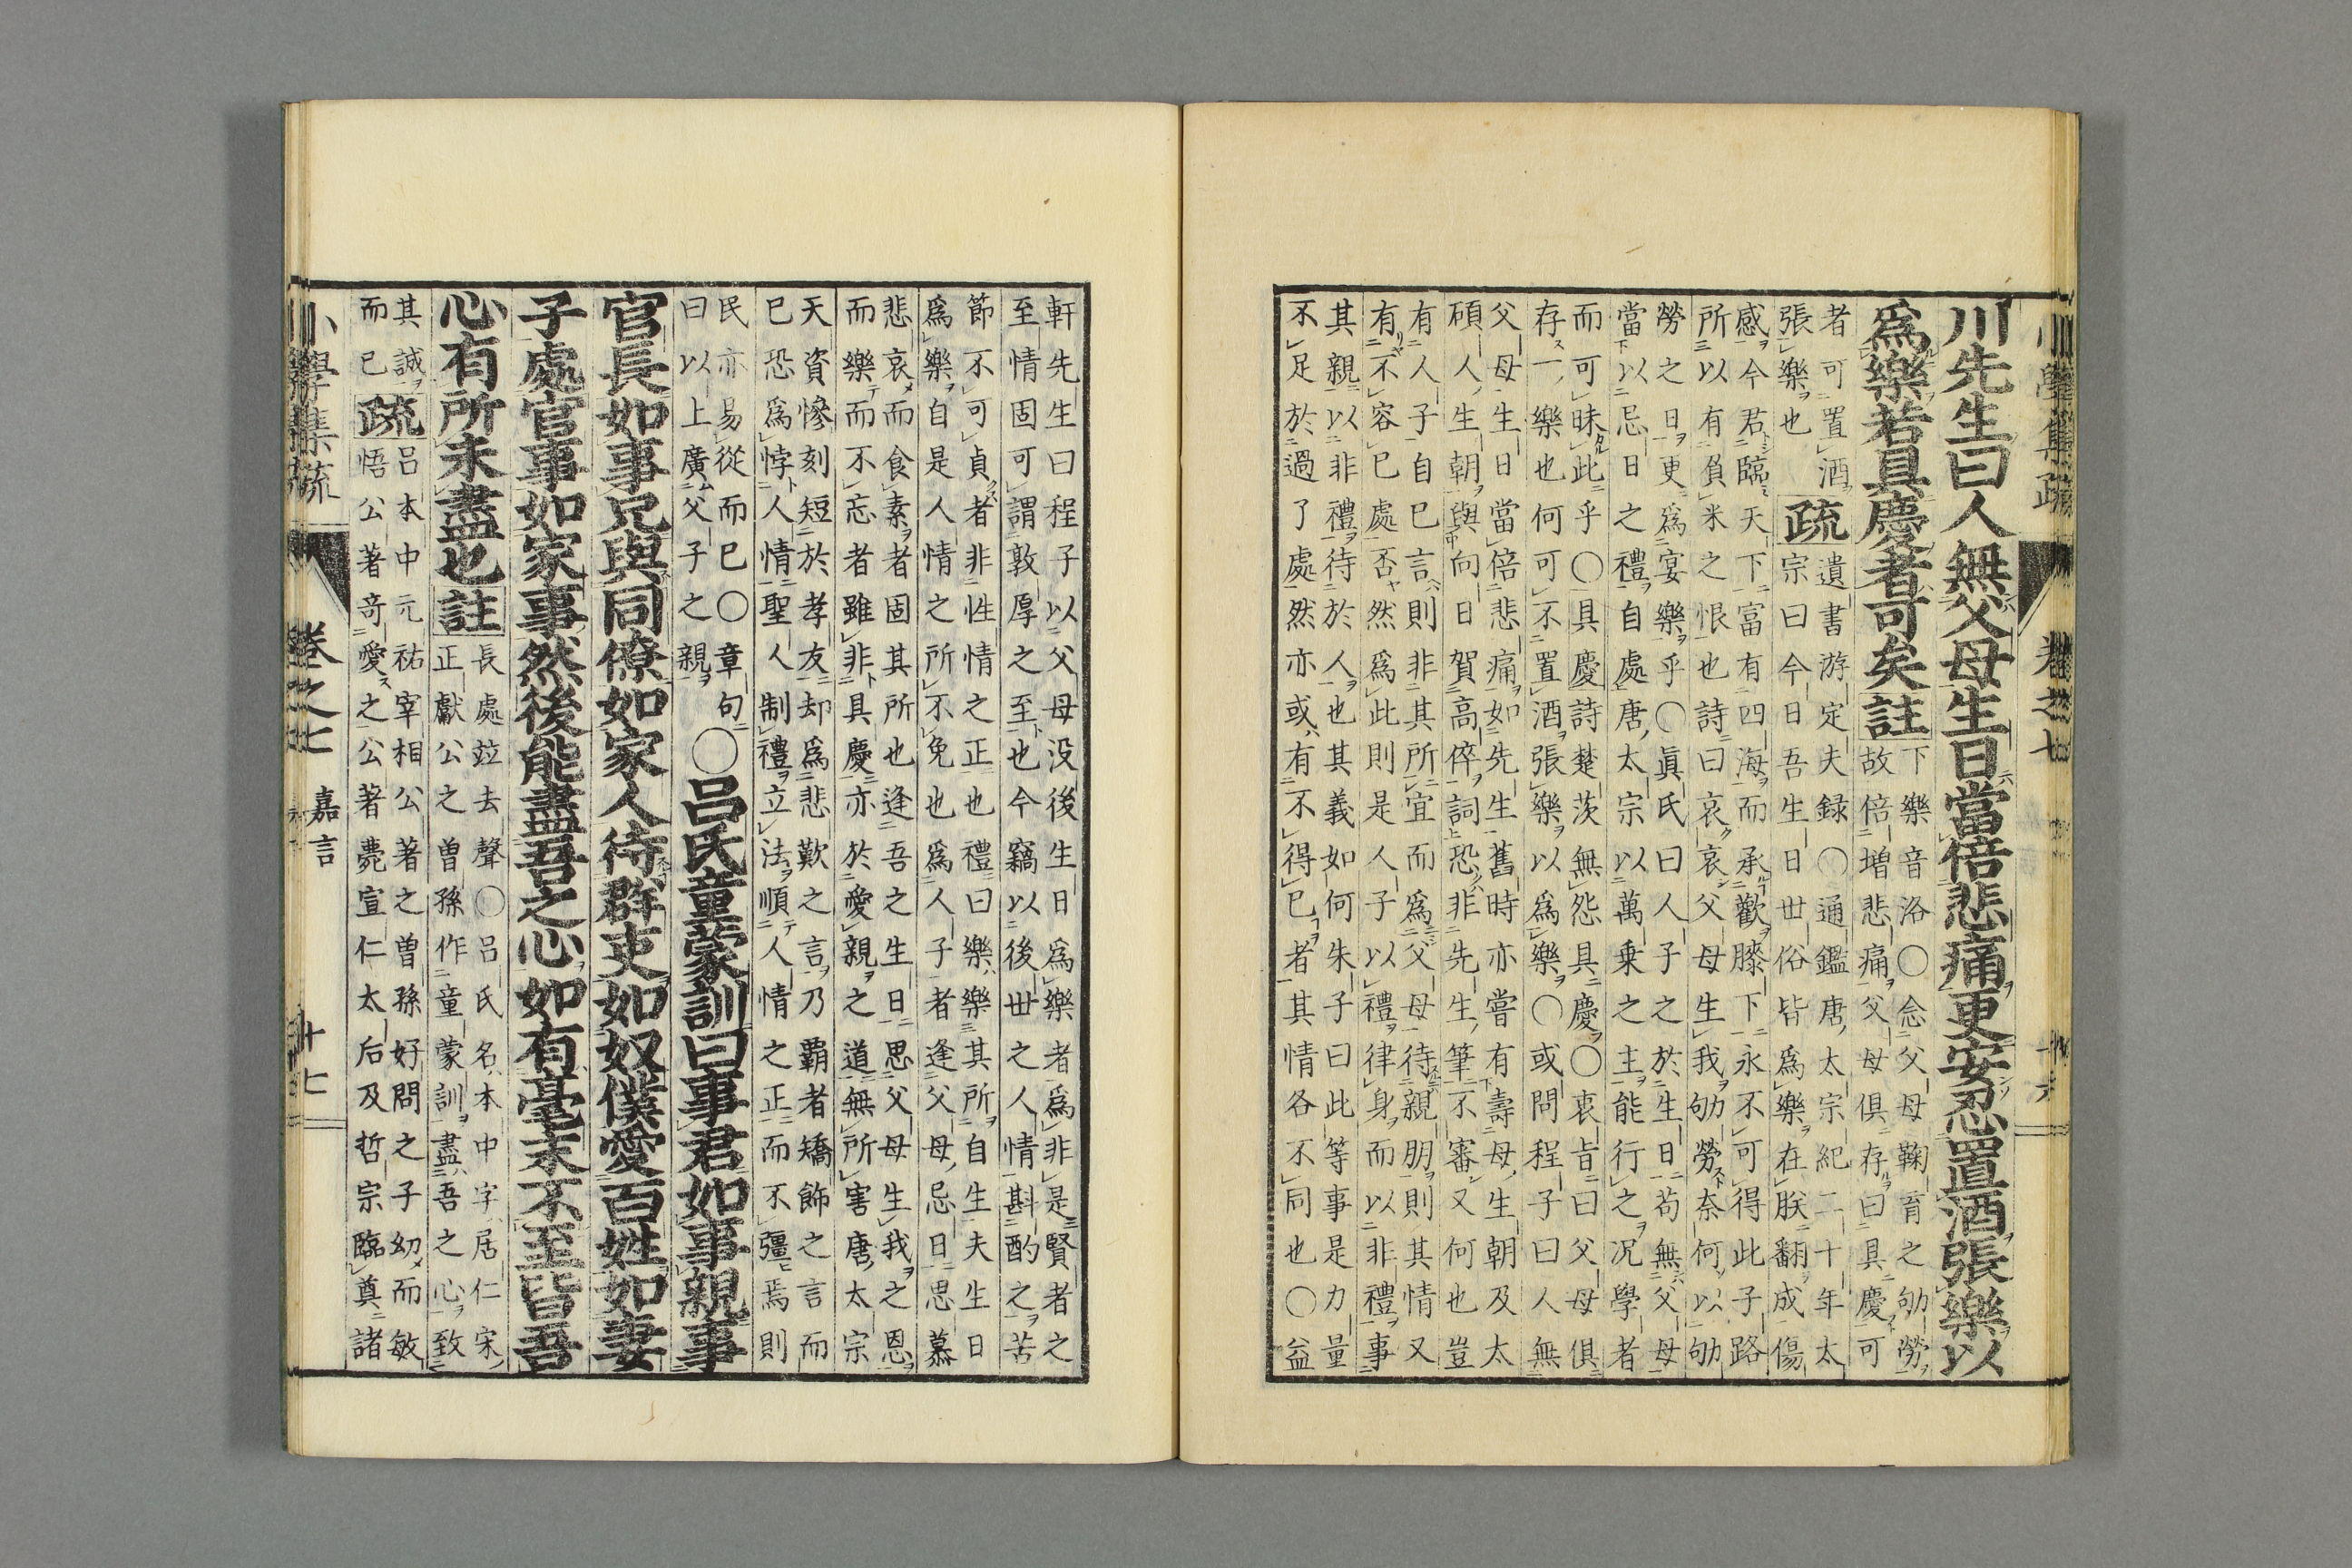 小學集疏 卷之七 十六
川先生曰人無父母生日當倍悲痛更安忍置酒張樂以
爲樂若具慶者可矣註
下樂音洛〇念父母鞠育之劬勞
故倍增悲痛父母俱存曰具慶可
者可置酒
張樂也
疏
遺書游定夫録〇通鑑唐太宗紀二十年太
宗曰今日吾生日世俗皆爲樂在朕翻成傷
感今君臨天下富有四海而承歡膝下永不可得此子路
所以有負米之恨也詩曰哀哀父母生我劬勞奈何以劬
勞之日更爲宴樂乎〇眞氏曰人子之於生日苟無父母
當以忌日之禮自處唐太宗以萬乗之主能行之况學者
而可昧此乎〇具慶詩楚茨無怨具慶〇衷旨曰父母俱
存一樂也何可不置酒張樂以爲樂〇或問程子曰人無
父母生日當倍悲痛如先生舊時亦嘗有壽母生朝及太
碩人生朝與向日賀高倅詞恐非先生筆不審又何也豈
有人子自已言則非其所宜而爲父母待親朋則其情又
有不容已處否然爲此則是人子以禮律身而以非禮事
其親以非禮待於人也其義如何朱子曰此等事是力量
不足於過了處然亦或有不得已者其情各不同也〇益
軒先生曰程子以父母没後生日爲樂者爲非是賢者之
至情固可謂敦厚之至也今竊以後世之人情斟酌之苦
節不可貞者非性情之正也禮曰樂樂其所自生夫生日
爲樂自是人情之所不免也爲人子者逢父母忌日思慕
悲哀而食素者固其所也逢吾之生日思父母生我之恩
而樂而不忘者雖非具慶亦於愛親之道無所害唐太宗
天資慘刻短於孝友却爲悲歎之言乃覇者矯飾之言而
已恐爲悖人情聖人制禮立法順人情之正而不彊焉則
民亦易從而已〇章句
曰以上廣父子之親
〇呂氏童蒙訓曰事君如事親事
官長如事兄與同僚如家人待群吏如奴僕愛百姓如妻
子處官事如家事然後能盡吾之心如有毫末不至皆吾
心有所未盡也註
長處竝去聲〇呂氏名本中字居仁宋
正獻公之曾孫作童蒙訓盡吾之心致
其誠
而已
疏
呂本中元祐宰相公著之曾孫好問之子幼而敏
悟公著竒愛之公著薨宣仁太后及哲宗臨奠諸
小學集疏 卷之七 嘉言 十七